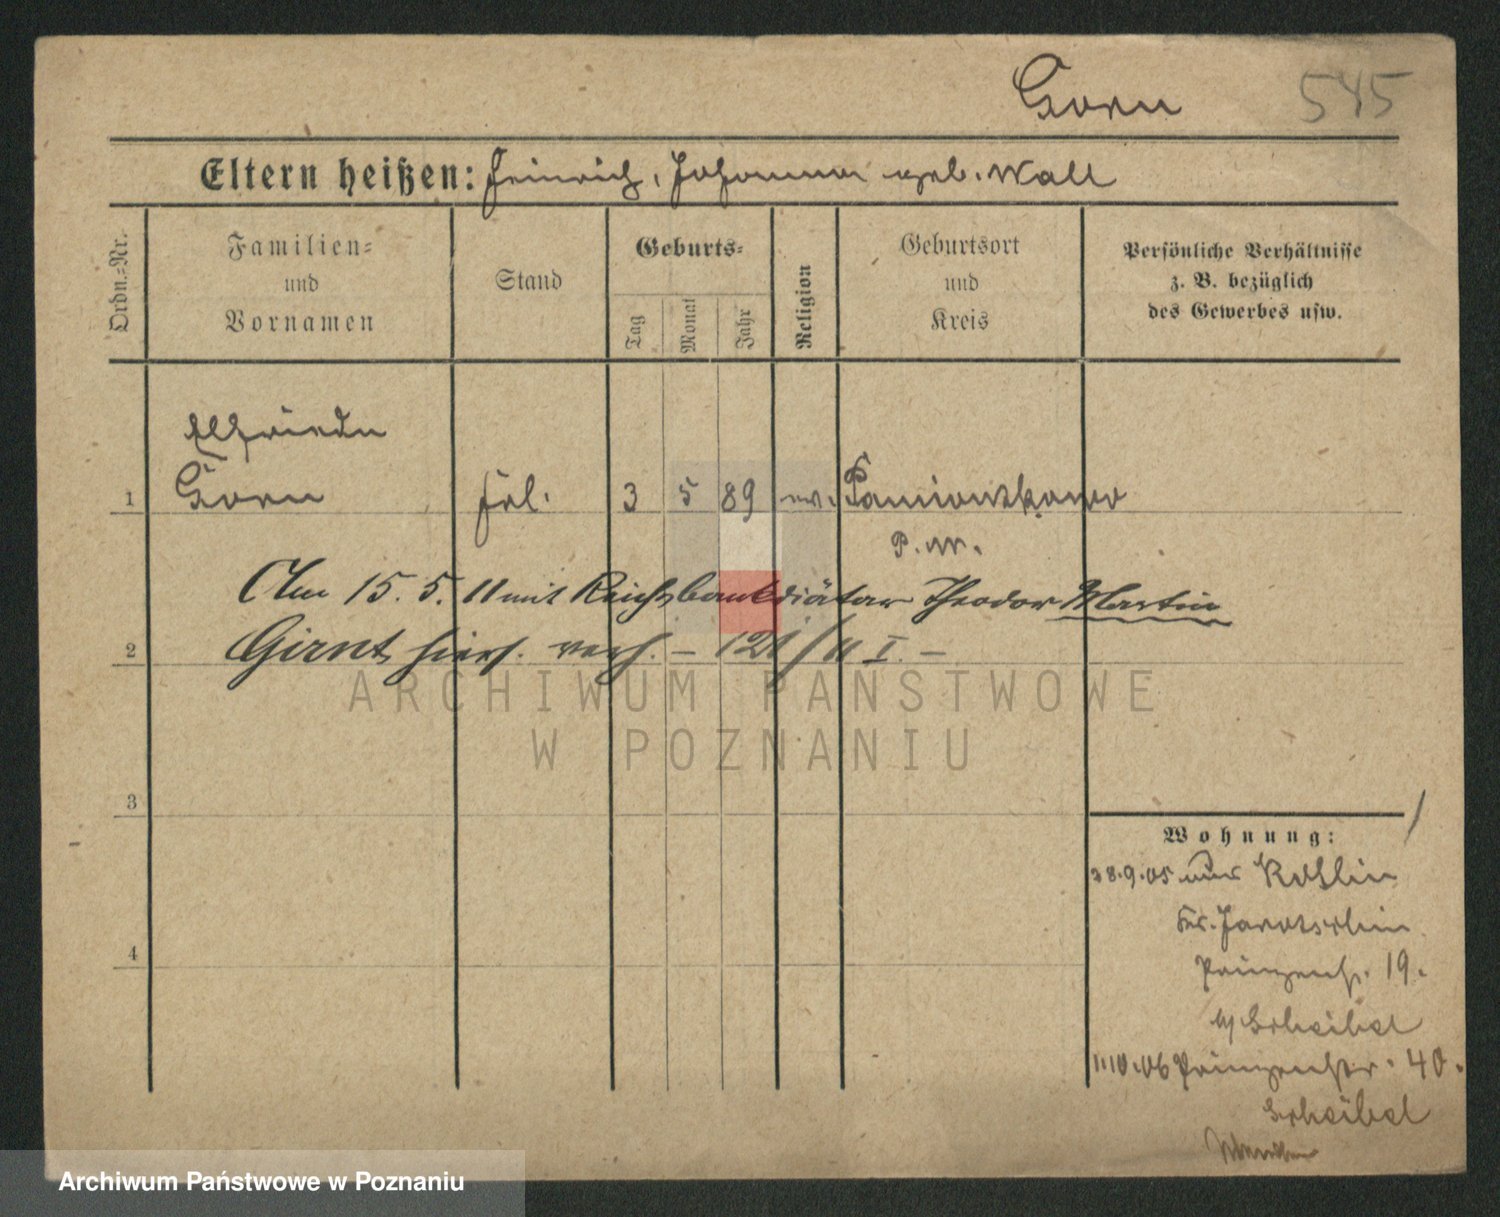 Gorn 545
Eltern heißen: Heinrich, Johanna geb. Wall
Ordn.-Nr.
Familien-
und
Vornamen
Stand
Geburts-
Tag
Monat
Jahr
Religion
Geburtsort
und
Kreis
Persönliche Verhältnisse
z. B. bezüglich
des Gewerbes usw.
Elfriede
1 Gorn Frl. 3 5 89 ev. Pamiontkowo
P. W.
Am 15. 5. 11 mit Reichsbankdiätar Theodor Martin
2 Girnt hiers. verh. – 121/11 I. –
3
4
Wohnung:
28.9.05 aus
Kr. Jarotschin
Prinzenst. 19.
b/ Scheibel
1.10.06 Prinzenstr. 40.
Scheibel
ARCHIWUM PAŃSTWOWE
W POZNANIU
Archiwum Państwowe w Poznaniu